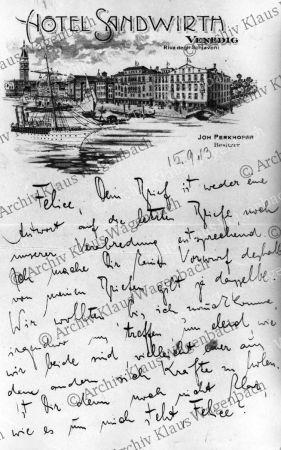 HOTEL SANDWIRTH
VENEDIG
Riva degli Schiavoni
JOH PERKHOFER
BESITZER
15.9.13
Felice, Dein Brief ist weder eine
Antwort auf die letzten Briefe noch
unserer Verabredung entsprechend.
Ich mache Dir keinen Vorwurf deshalb
von meinen Briefen gilt ja dasselbe
Wir wollten bis, ich zurückkomme
irgendwo uns treffen um elend wie
wir beide sind vielleicht einer am
andern sich Kräfte zu holen.
Ist Dir denn noch nicht klar,
wie es um mich steht Felice?
© Archiv Klaus Wagenbach